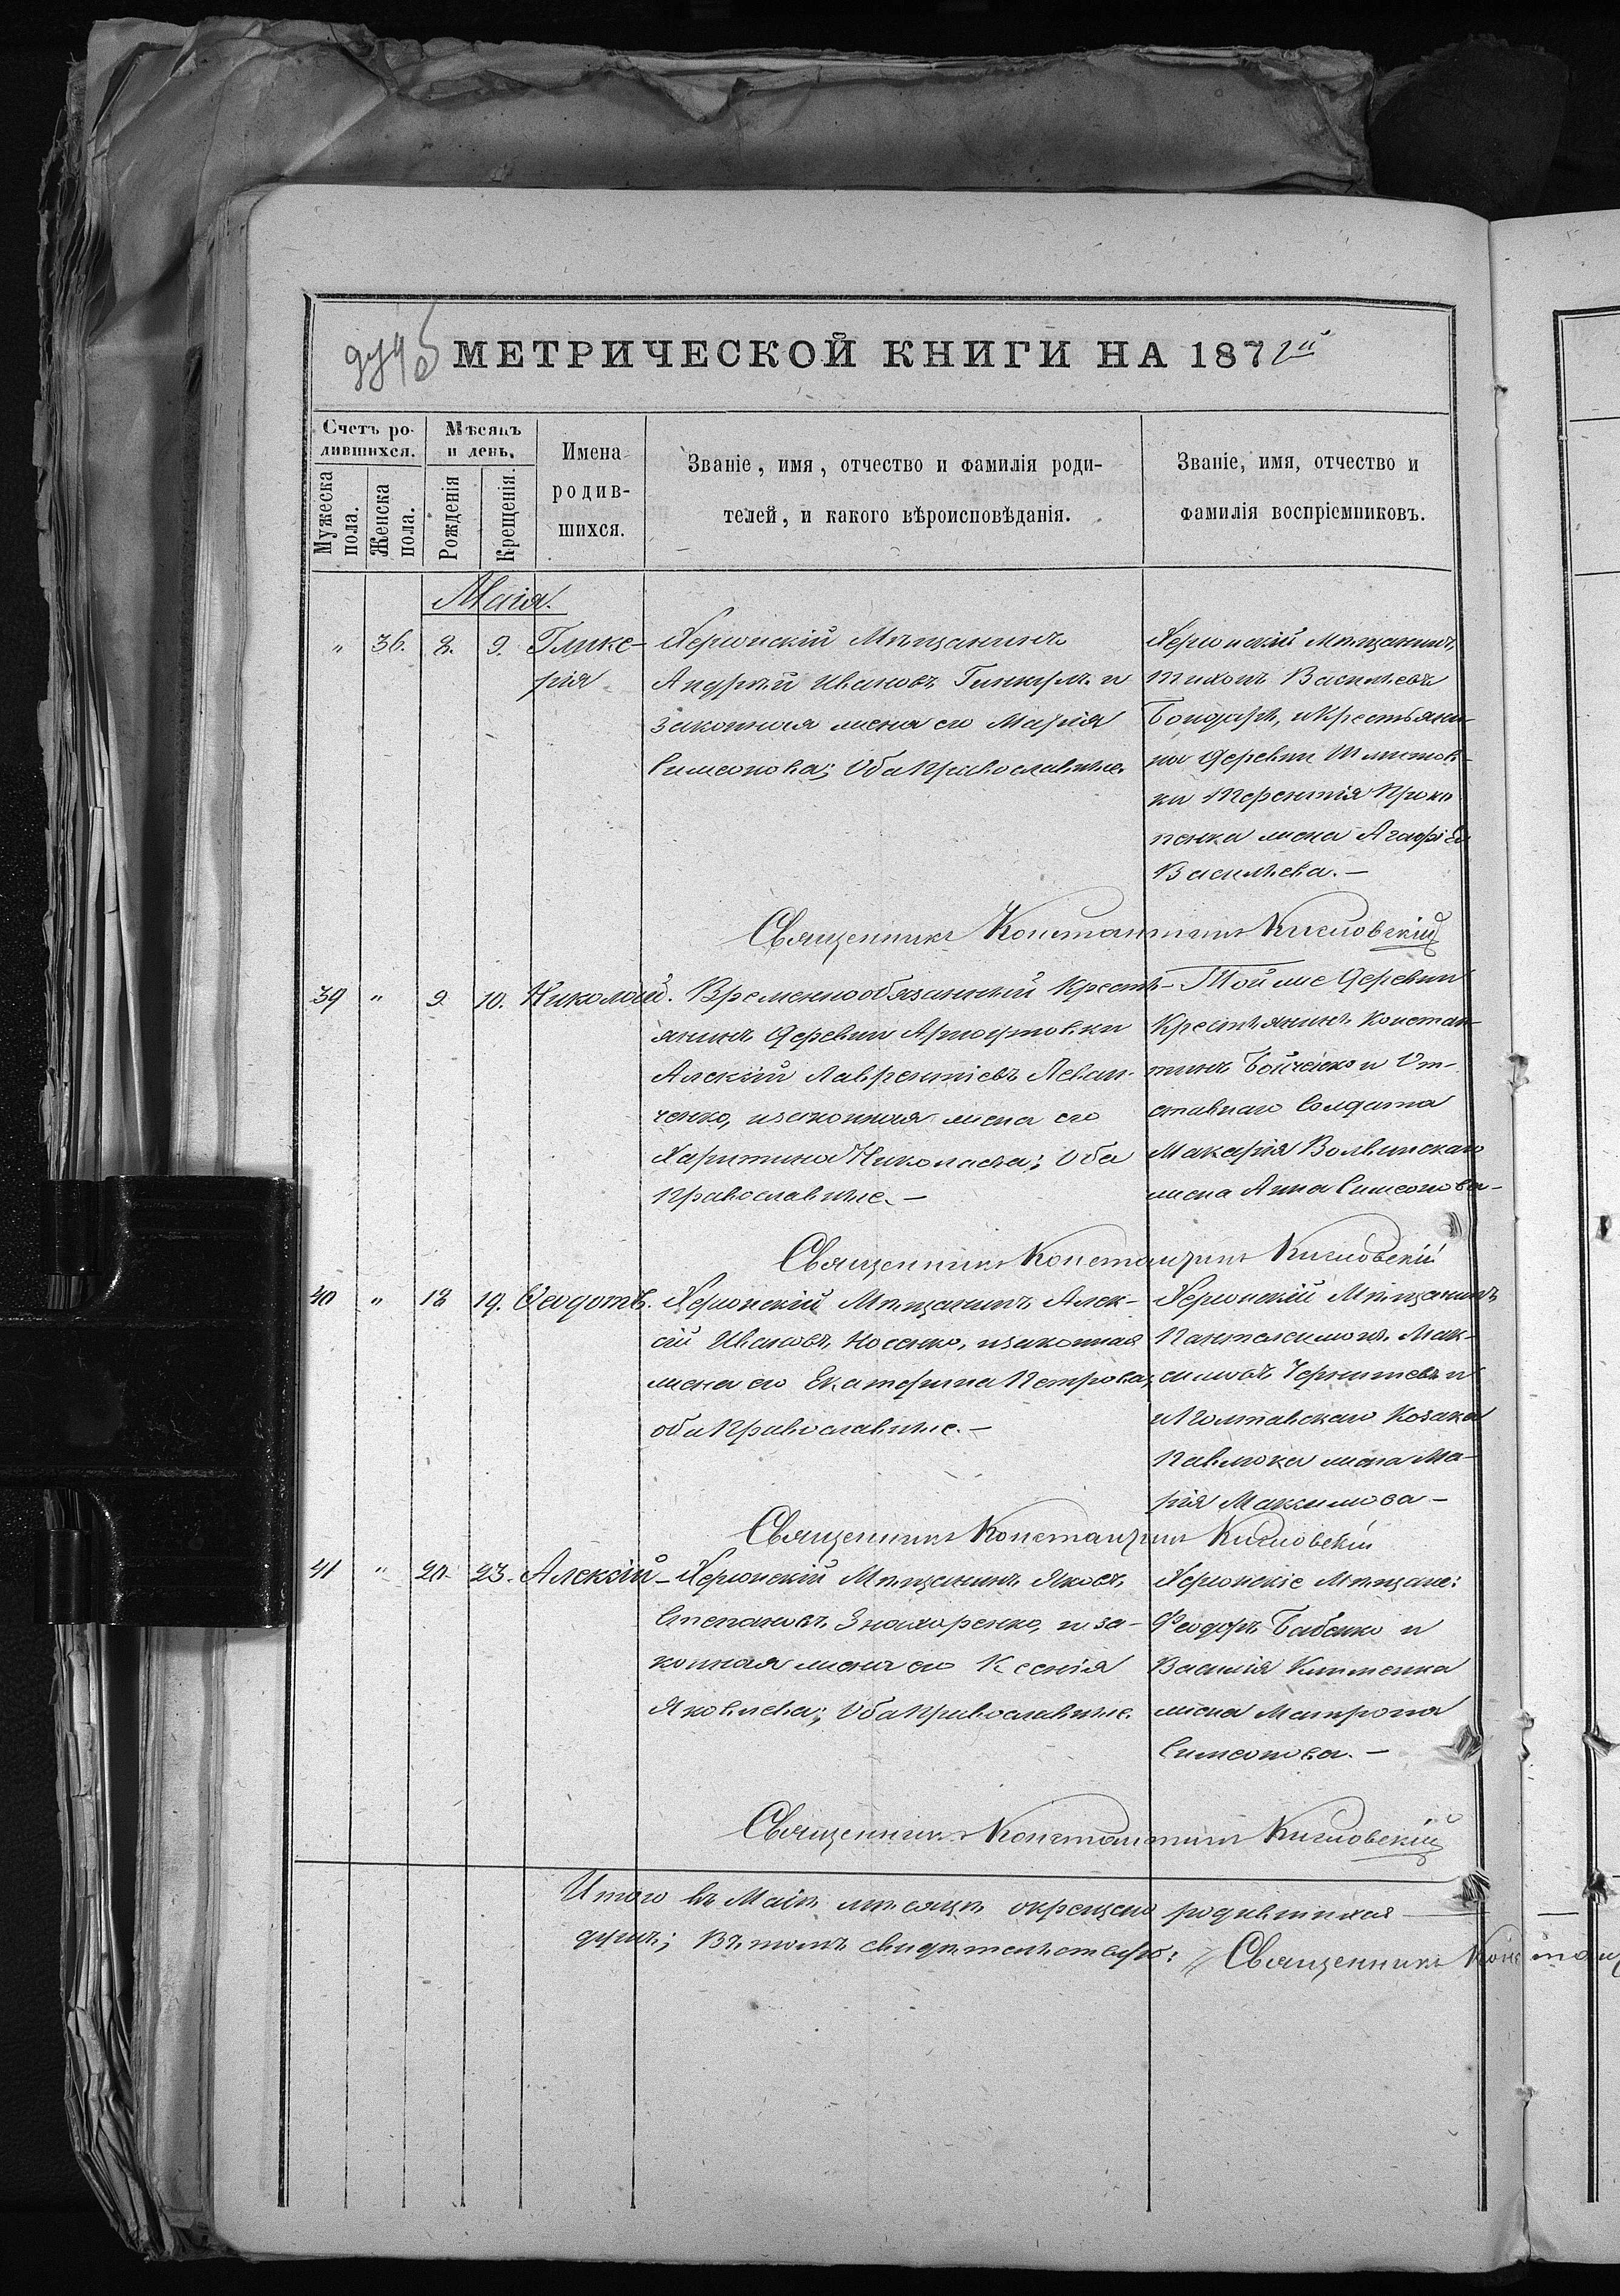 МЕТРИЧЕСКОЙ КНИГИ НА 1872й
Счетъ ро-
дившихся.
Мужеска пола.
Женска пола.
Мѣсяцъ
и день.
Рожденія
Крещенія.
Имена
родив-
шихся.
Званіе, имя, отчество и фамилія роди-
телей, и какого вѣроисповѣданія.
Званіе, имя, отчество и
фамилія воспріемниковъ.
Маія.
" 36. 8. 9. Глике-
рія
Херсонскій Мѣщанинъ
Андрей Ивановъ и
законная жена его Марія
Симеонова; Оба Православные.
Херсонскій мѣщанинъ
Тихонъ Васильевъ
Бондарь, и Крестьяни-
на деревни
ки Терентія Проко
пенка жена Агафія
Васильева. —
Священникъ Константинъ
39 " 9 10. Николай.
Временнообязанный Кресть-
янинъ деревни
Алексій Лаврентіевъ Леван-
ченко, и законная жена его
Харитина Николаева; Оба
Православные. —
Той же деревни
Крестьянинъ Констан-
тинъ Бойченко и От-
ставнаго Солдата
Макарія Волынскаго
жена Анна Симеонова —
Священникъ Константинъ
40 " 18 19. Ѳеодотъ.
Херсонскій Мѣщанинъ Алек-
сій Ивановъ Носенко, и законная
жена его Екатерина Петрова;
оба Православные. —
Херсонскій Мѣщанинъ
Пантелеимонъ Мак-
симовъ Чернышевъ и
Полтавскаго Козака
Павлюка жена Ма-
рія Максимова —
Священникъ Константинъ
41 " 20. 23. Алексій —
Херсонскій Мѣщанинъ Яковъ
Степановъ Знахоренко, и за-
конная жена его Ксенія
Яковлева; Оба Православные.
Херсонскіе Мѣщане:
Феодоръ Бабенко и
Василія
жена Матрона
Симеонова. —
Священникъ Константинъ
Итого въ Маіѣ мѣсяцѣ окрещено родившихся
душъ; Въ томъ свидѣтельствую: Священникъ